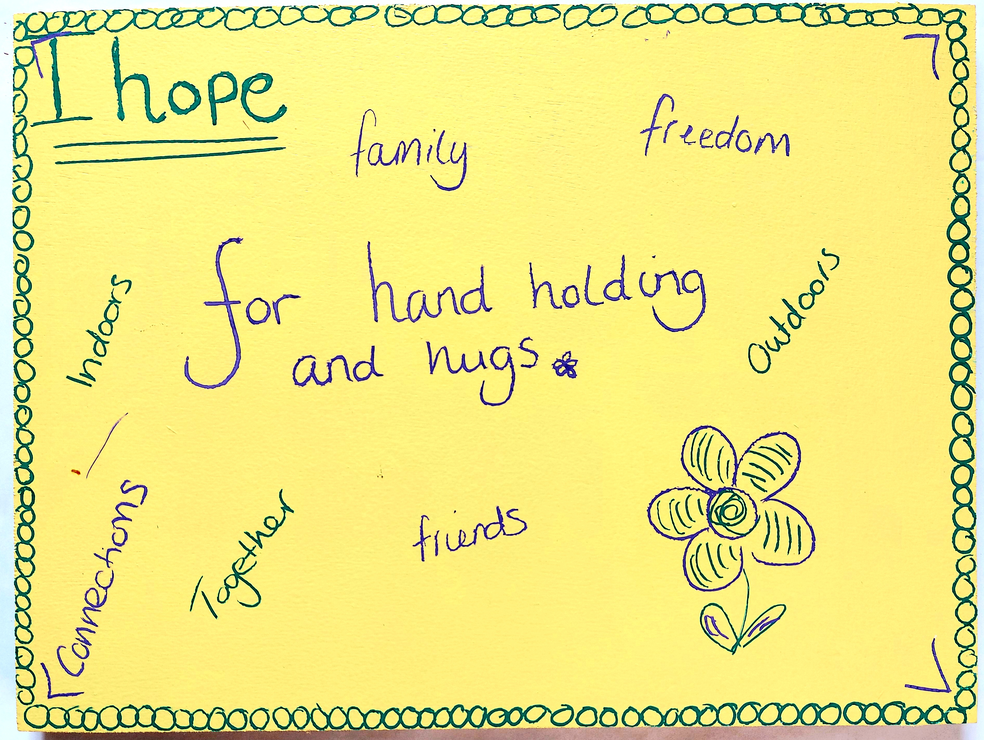 I hope
family
freedom
for hand holding
and hugs
Indoors
Outdoors
Connections
Together
friends